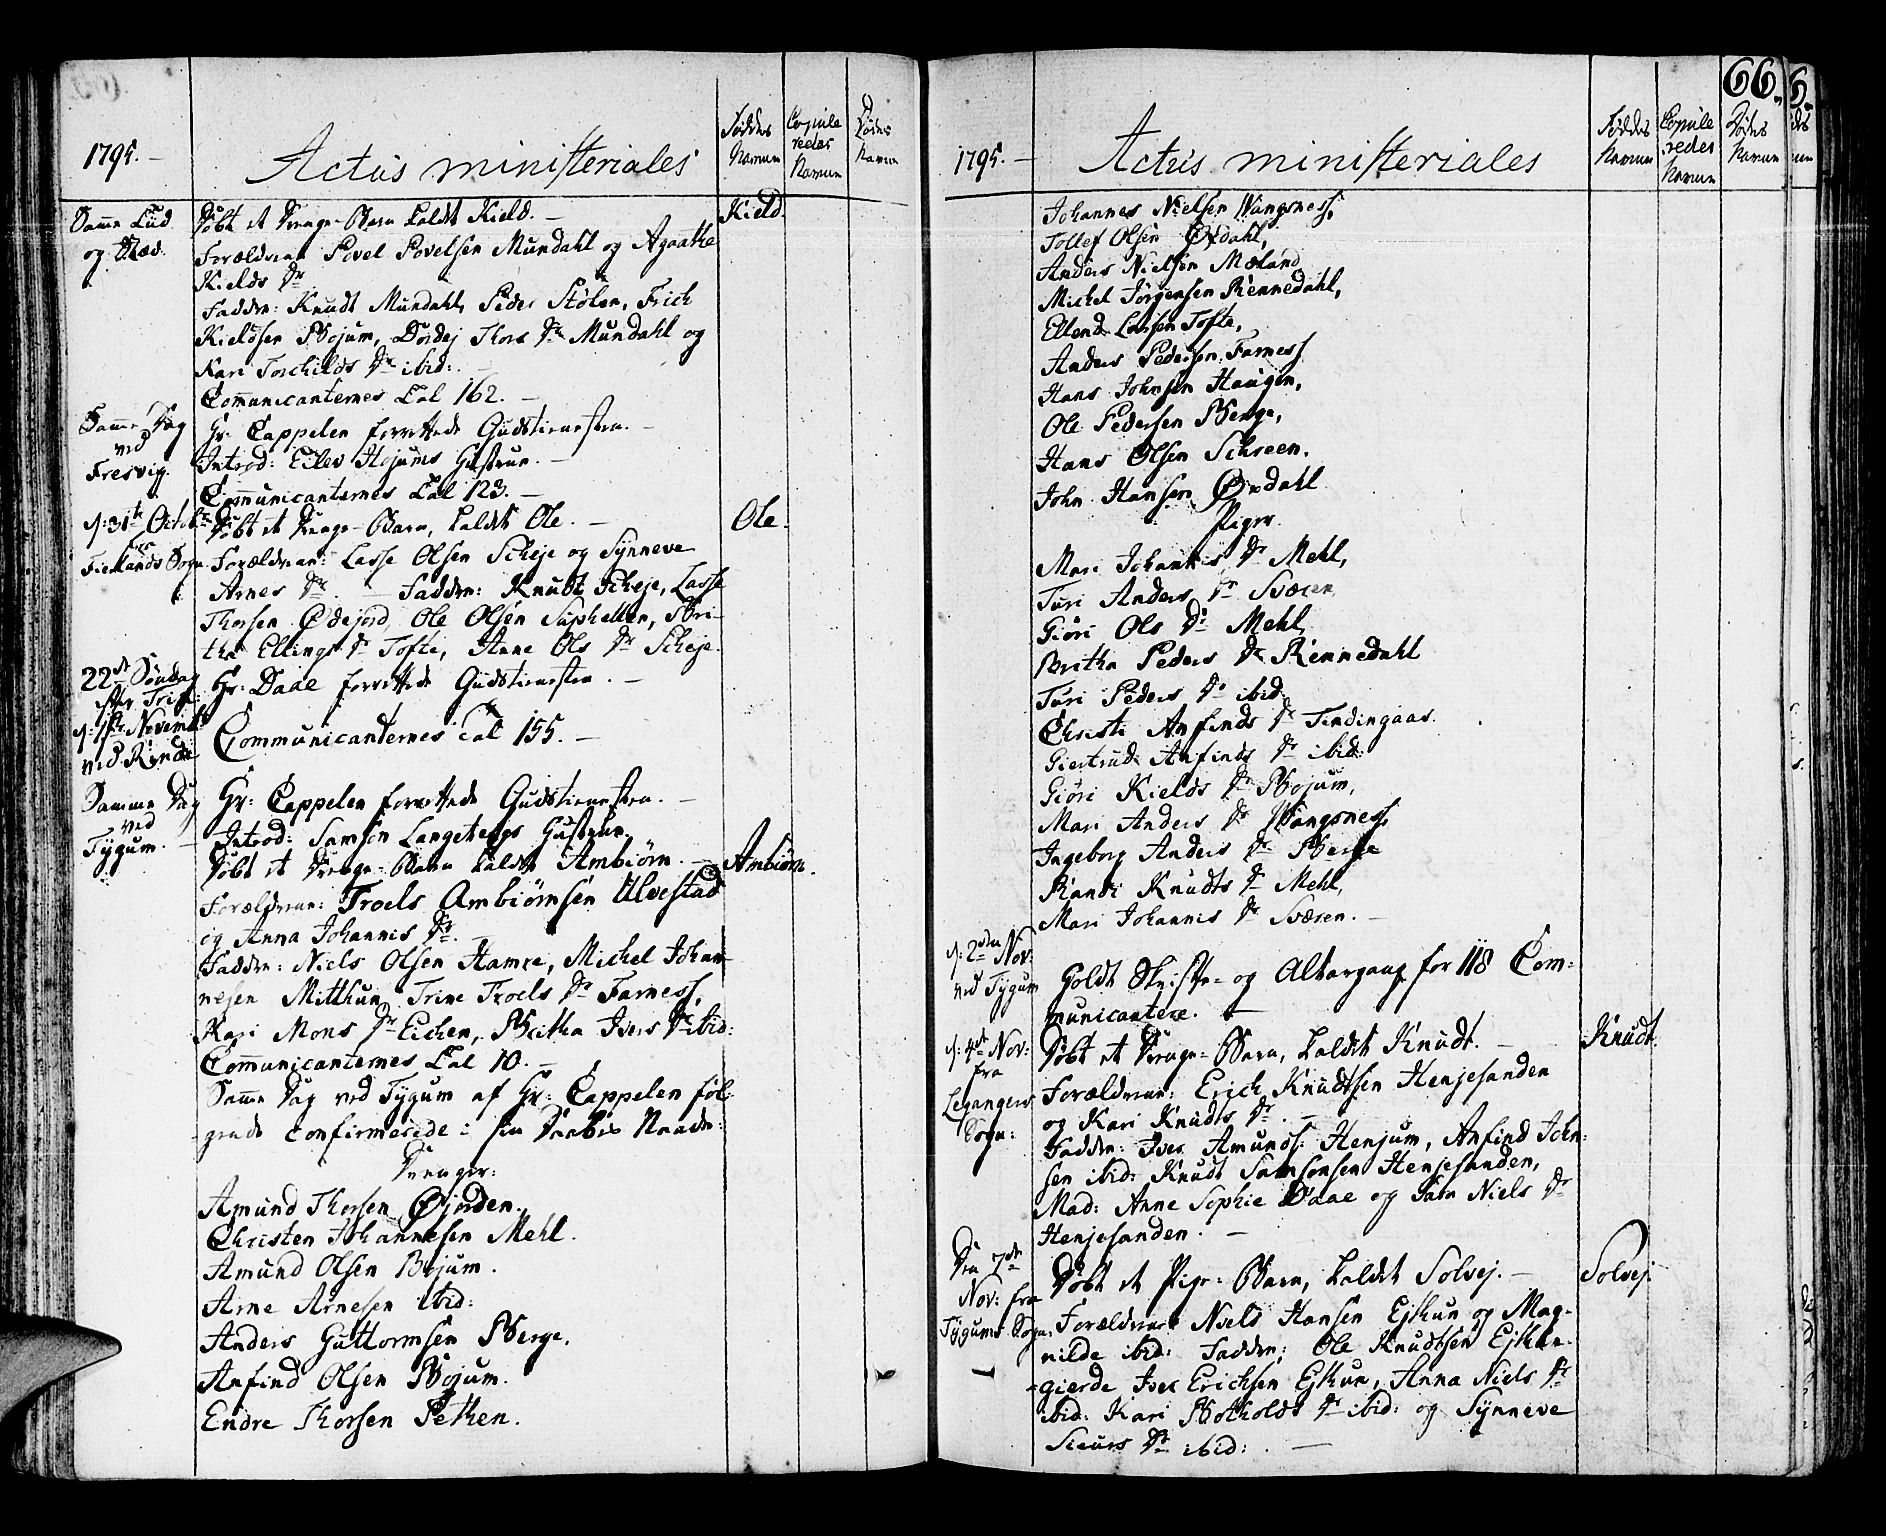 1795.
Actus ministeriales
Føddes Navne
Copuleredes Navne
Dødes Navne
Samme Tiid og Stæd.
Døbt et Drenge-Barn kaldet Kield. —
Kield.
Forældrene Povel Povelsen Mundahl og Agaathe
Kields Dr.
Faddere: Knudt Mundahl, Peder Stølen, Erich
Kieldsen Bojum, Dordej Thors Dr Mundahl og
Kari Torchilds Dr ibid: —
Communicanternes Tal 162. —
Samme Dag ved Fresvig.
Hr: Cappelen forrettede Gudstienesten. —
Introd: Eilev Hojums Hustrue. —
Communicanternes Tal 123. —
d: 31te Octobr
Døbt et Drenge-Barn, kaldet Ole. —
Ole.
Fierlands Sogn
Forældrene: Lasse Olsen Scheje og Synneve
Arnes Dr. — Faddere: Knudt Scheje, Lasse
Thorsen Ødejord, Ole Olsen Suphellen, Bri-
tha Ellings Dr Tofte, Anne Ols Dr Scheje.
22de Søndag efter Trinit:
Hr: Daae forrettede Gudstienesten. —
d: 1ste Novemb: ved Rinde
Communicanternes Tal 155. —
Samme Dag ved Tygum. —
Hr: Cappelen forrettede Gudstienesten. —
Introd: Samson Langetegs Hustrue.
Døbt et Drenge-Barn kaldet Ambiørn. —
Ambiørn.
Forældrene: Troels Ambiørnsen Ulvestad
og Anna Johannis Dr. —
Faddere: Niels Olsen Hamre, Michel Johan-
nesen Mitthun, Trine Troels Dr Farness,
Kari Mons Dr Eichen, Britha Ivers Dr ibid:
Communicanternes Tal 10. —
Samme Dag ved Tygum af Hr: Cappelen føl-
gende confirmerede i sin Daabes Naade:
Drenger:
Amund Thorsen Øjorden.
Christen Johannesen Mehl.
Amund Olsen Bojum.
Arne Arnesen ibid:
Anders Guttormsen Berge.
Anfind Olsen Bojum.
Endre Thorsen Pethen.
66.
1795. —
Actus ministeriales
Føddes Navne
Copuleredes Navne
Dødes Navne
Johannes Nielsen Wangsness,
Tollef Olsen Øxdahl,
Anders Nielsen Mæland,
Michel Jørgensen Rennedahl,
Ellend Larsen Tofte,
Anders Pedersen Farness,
Hans Johnsen Haugen,
Ole Pedersen Berge,
Hans Olsen Schreen.
John Hansen Øxdahl
Piger.
Mari Johannis Dr Mehl,
Turi Anders Dr Sværen
Giøri Ols Dr Mehl,
Britha Peders Dr Rennedahl
Turi Peders Dr ibid:
Christi Anfinds Dr Tindingaas.
Giertrud Anfinds Dr ibid:
Giøri Kields Dr Bojum,
Mari Anders Dr Wangsness,
Ingeborg Anders Dr Berge
Randi Knudts Dr Mehl,
Mari Johannis Dr Sværen. —
d: 2den Nov: ved Tygum
Holdt Skrifte- og Altergang for 118 Com-
municantere. —
d: 4de Nov: fra Leganger Sogn:
Døbt et Drenge-Barn, kaldet Knudt. —
Knudt.
Forældrene: Erich Knudtsen Henjesanden
og Kari Knuds Dr. —
Faddere: Iver Amunds: Henjum, Anfind John-
sen ibid: Knudt Samsonsen Henjesanden,
Mad: Anne Sophie Daae og Sara Niels Dr
Henjesanden. —
Den 7de Nov: fra Tygums Sogn.
Døbt et Pige-Barn, kaldet Solvej. —
Solvej.
Forældrene Niels Hansen Ejthun og Mag-
nilde ibid: Faddere: Ole Knudtsen Ejthun-
gierde Iver Erichsen Ejthun, Anna Niels Dr
ibid: Kari Botholds Dr ibid: og Synneve
Siurs Dr ibid: —